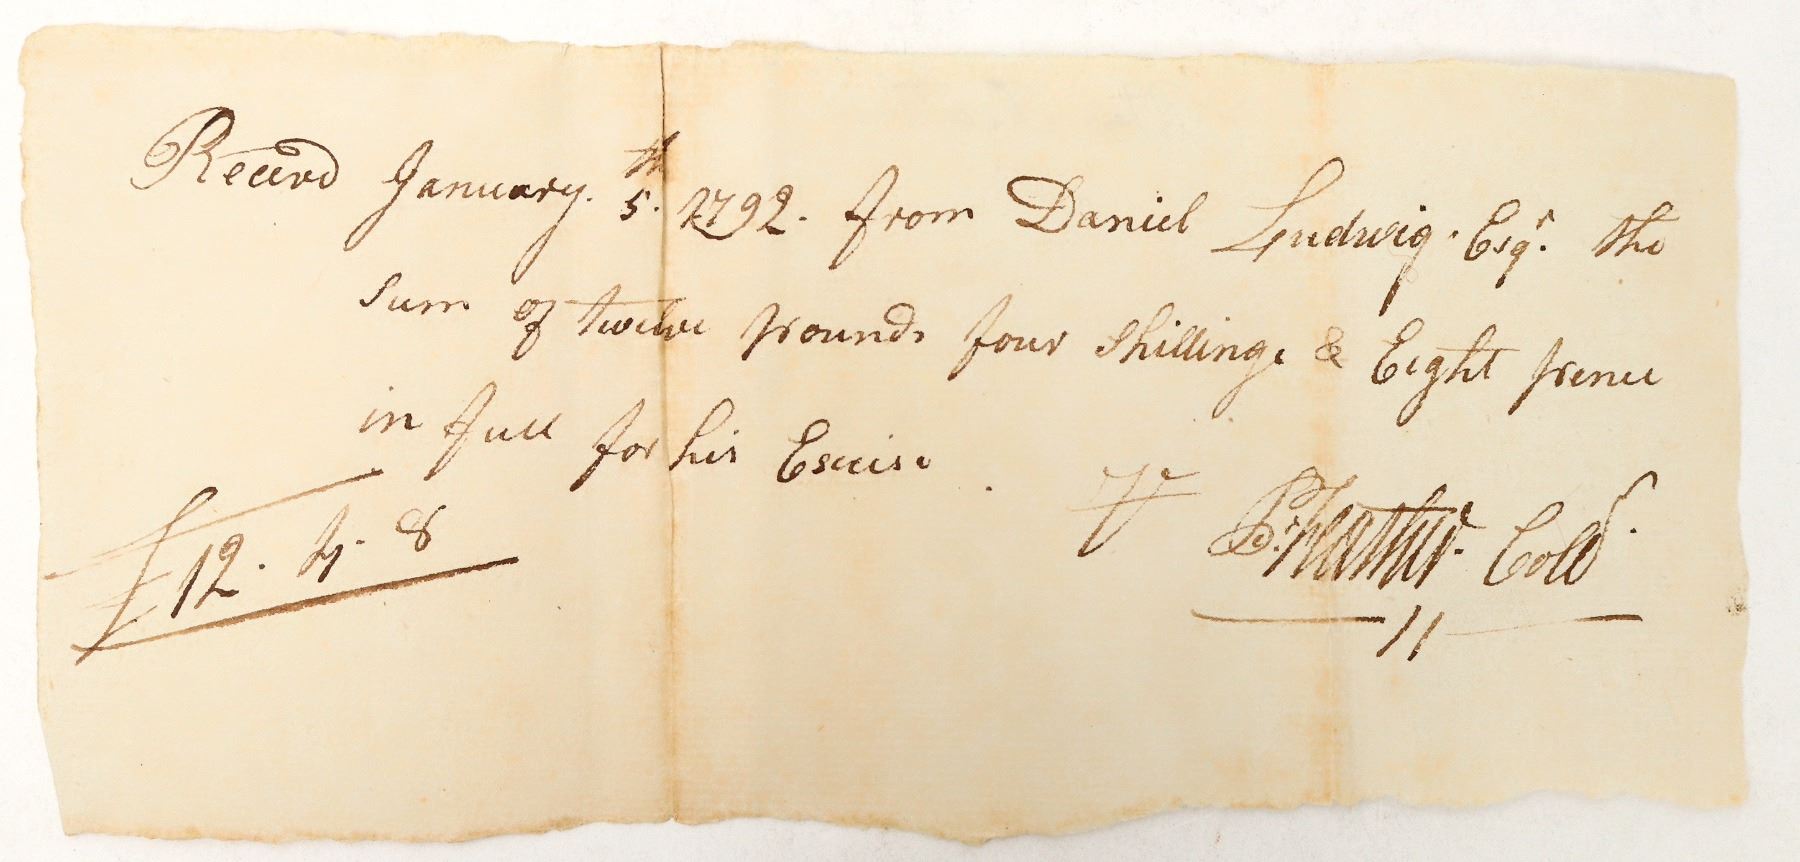 Receivd January. 5.th 1792. from Daniel Ludwig. Esqr. the
sum of twelve pounds four Shillings & Eight pence
in full for his Exise
£ 12. 4. 8
Pr Collr.